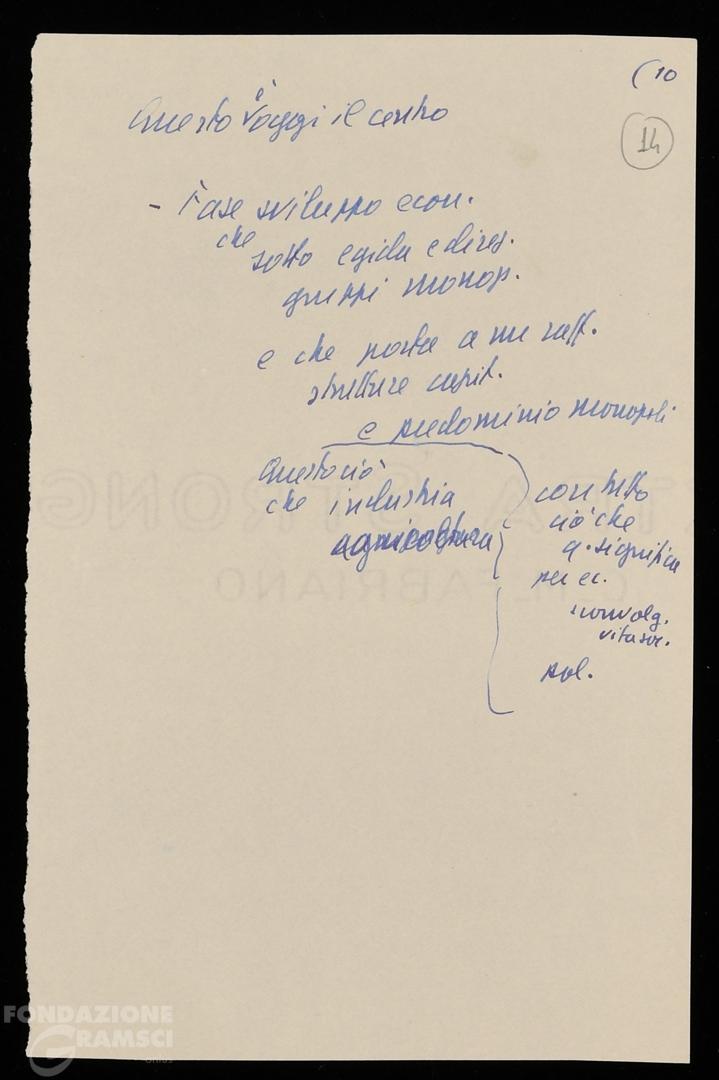 (10
14
Questo è oggi il centro
- Fase sviluppo econ.
che sotto egida e direz.
gruppi monop.
e che porta a un raff.
strutture capit.
e predominio monopoli
Questo ciò
che industria
agricoltura
con tutto
ciò che
q. significa
per ec.
sconvolg.
vita soc.
pol.
FONDAZIONE
GRAMSCI
onlus